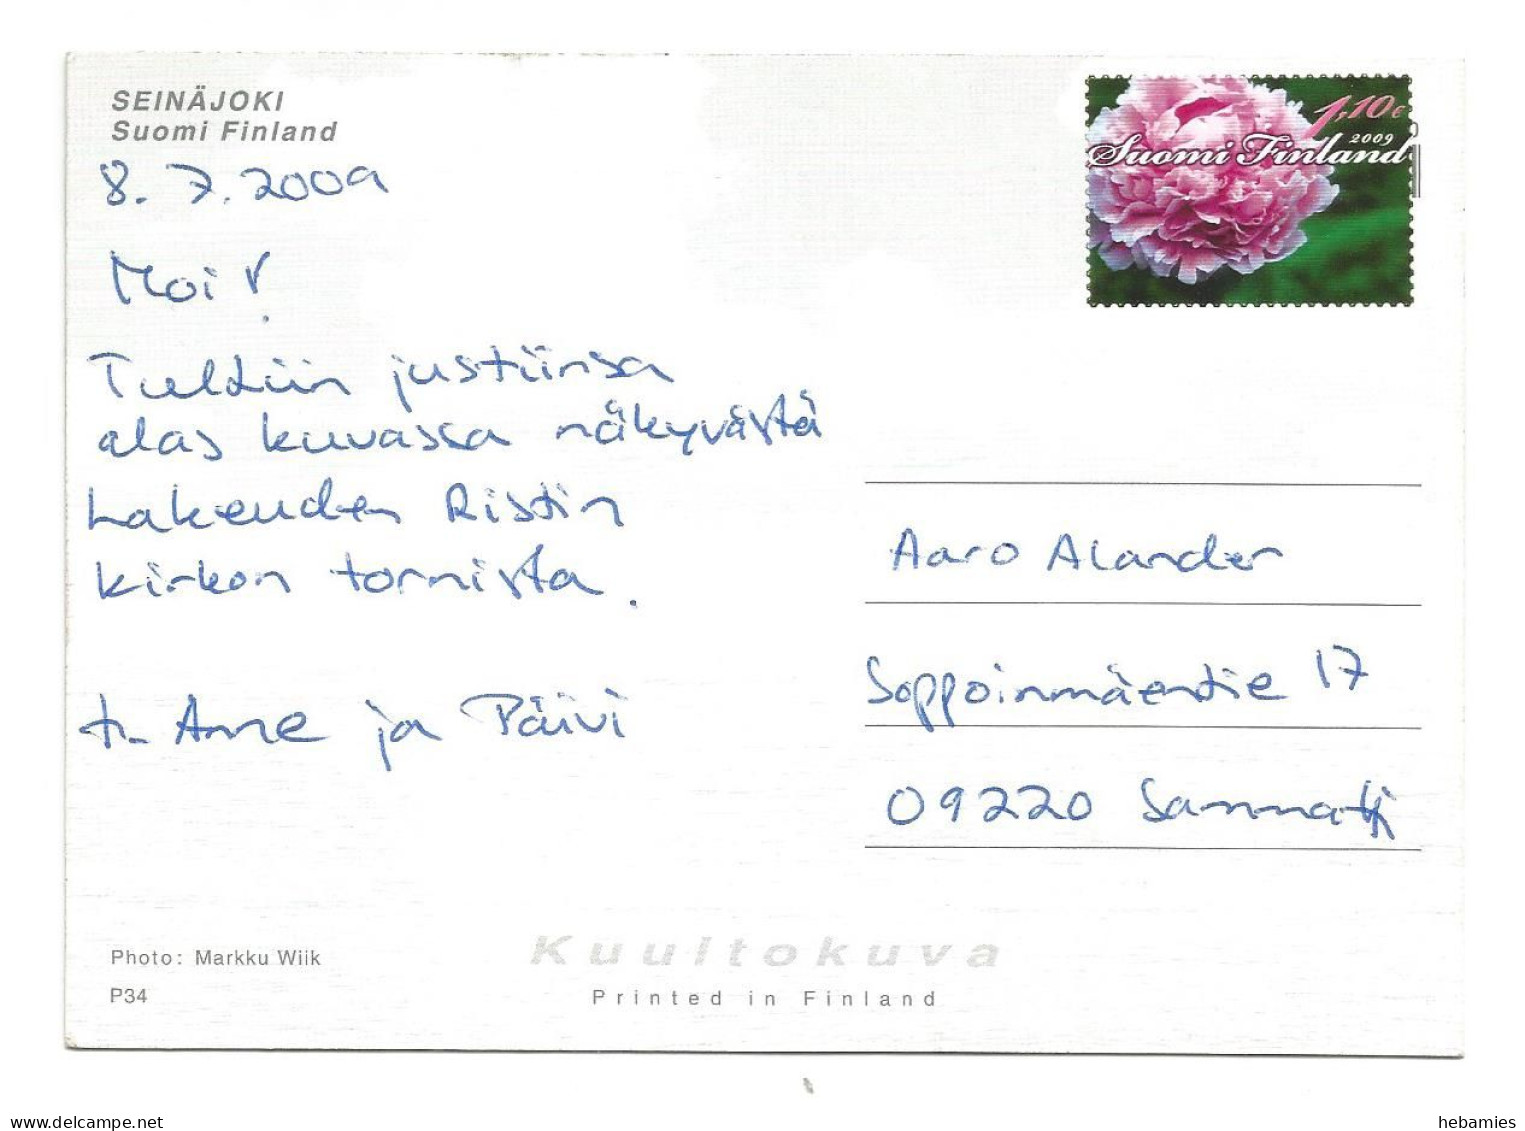 SEINÄJOKI
Suomi Finland
8.7.2009
Moi!
Tultiin justiinsa
alas kuvassa näkyvästä
Lakeuden Ristin
kirkon tornista.
t. Anne ja Päivi
1,10€
2009
Suomi Finland
Aaro Alander
Soppoinmäentie 17
09220 Sammatti
Photo: Markku Wiik
P34
Kuultokuva
Printed in Finland
hebamies